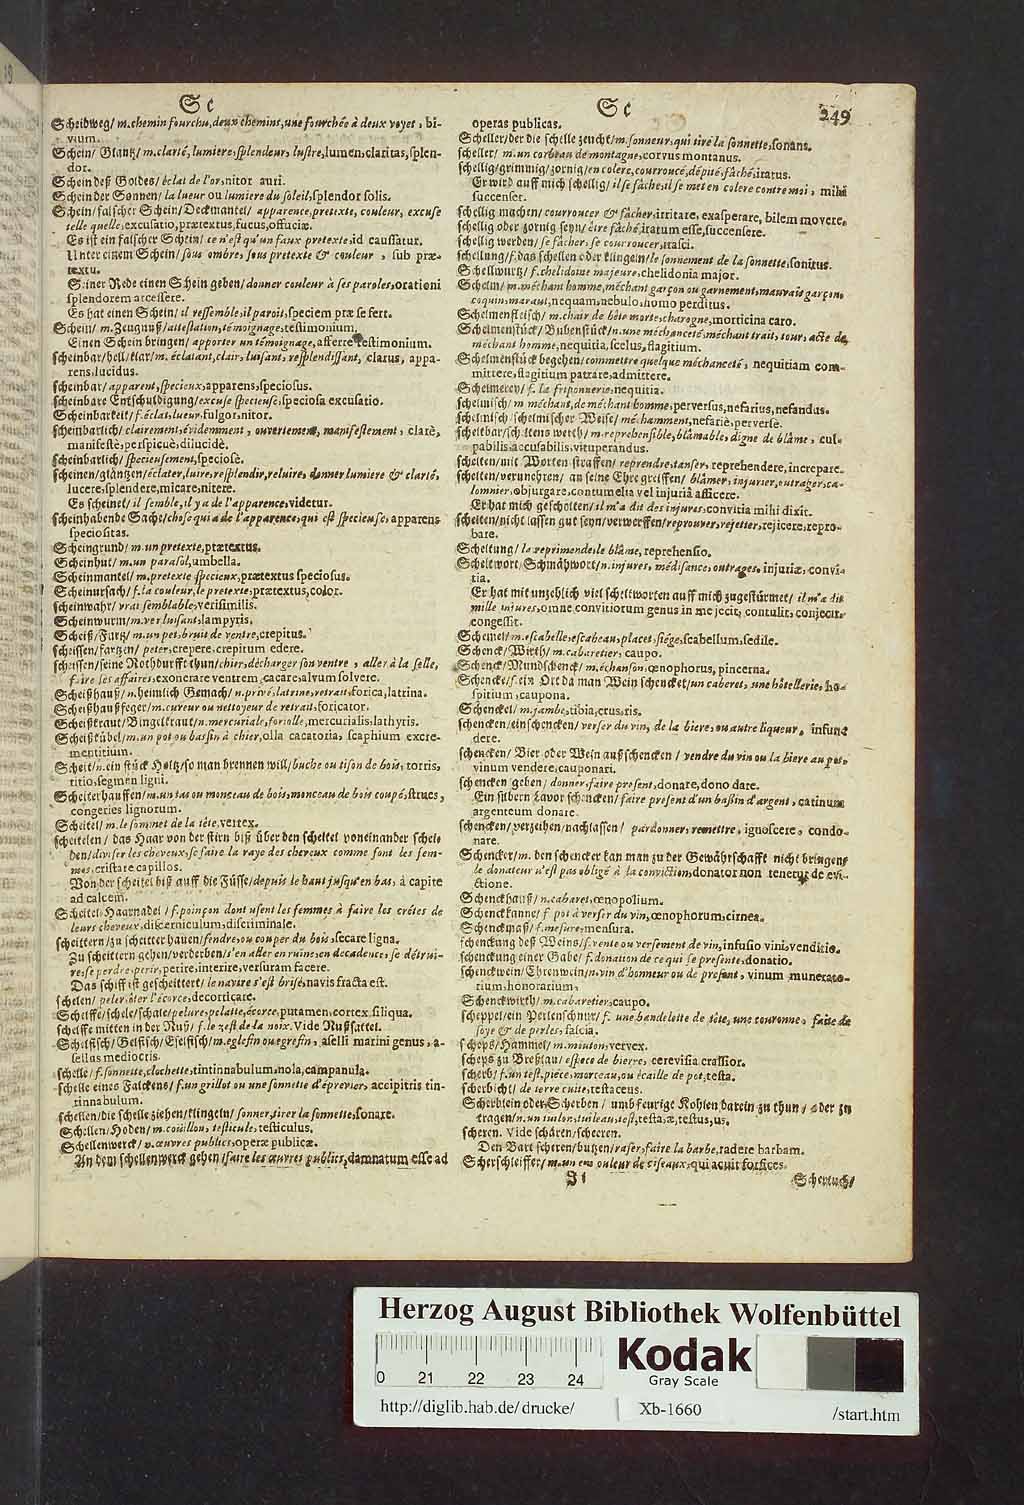 Sc
Scheidweg/ m. chemin fourchu, deux chemins, une fourchée à deux voyes, bi-
vium.
Schein/ Glantz/ m. clarté, lumiere, splendeur, lustre, lumen, claritas, splen-
dor.
Schein deß Goldes/ éclat de l'or, nitor auri.
Schein der Sonnen/ la lueur ou lumiere du soleil, splendor solis.
Schein/ falscher Schein/ Deckmantel/ apparence, pretexte, couleur, excuse
telle quelle, excusatio, prætextus, fucus, offuciæ.
Es ist ein falscher Schein/ ce n'est qu'un faux pretexte, id caussatur.
Unter einem Schein/ sous ombre, sous pretexte & couleur, sub præ-
textu.
Seiner Rede einen Schein geben/ donner couleur à ses paroles, orationi
splendorem arcessere.
Es hat einen Schein/ il ressemble, il paroit, speciem præ se fert.
Schein/ m. Zeugnuß/ attestation, témoignage, testimonium.
Einen Schein bringen/ apporter un témoignage, afferre testimonium.
scheinbar/ hell/ klar/ m. éclatant, clair, luisant, resplendissant, clarus, appa-
rens, lucidus.
scheinbar/ apparent, specieux, apparens, speciosus.
scheinbare Entschuldigung/ excuse specieuse, speciosa excusatio.
Scheinbarkeit/ f. éclat, lueur, fulgor, nitor.
scheinbarlich/ clairement, évidemment, ouvertement, manifestement, clarè,
manifestè, perspicuè, dilucidè.
scheinbarlich/ specieusement, speciosè.
scheinen/ gläntzen/ éclater, luire, resplendir, reluire, donner lumiere & clarté,
lucere, splendere, micare, nitere.
Es scheinet/ il semble, il y a de l'apparence, videtur.
scheinhabende Sache/ chose qui a de l'apparence, qui est specieuse, apparens
speciositas.
Scheingrund/ m. un pretexte, prætextus.
Scheinhut/ m. un parasol, umbella.
Scheinmantel/ m. pretexte specieux, prætextus speciosus.
Scheinursach/ f. la couleur, le pretexte, prætextus, color.
scheinwahr/ vrai semblable, verisimilis.
Scheinwurm/ m. ver luisant, lampyris.
Scheiß/ Fartz/ m. un pet, bruit de ventre, crepitus.
scheissen/ fartzen/ peter, crepere, crepitum edere.
scheissen/ seine Nothdurfft thun/ chier, décharger son ventre, aller à la selle,
faire les affaires, exonerare ventrem, cacare, alvum solvere.
Scheißhauß/ n. heimlich Gemach/ n. privé, latrine, retrait, forica, latrina.
Scheißhaußfeger/ m. cureur ou nettoyeur de retrait, foricator.
Scheißkraut/ Bingelkraut/ n. mercuriale, foriolle, mercurialis, lathyris.
Scheißkübel/ m. un pot ou bassin à chier, olla cacatoria, scaphium excre-
mentitium.
Scheit/ n. ein stück Holtz/ so man brennen will/ buche ou tison de bois, torris,
titio, segmen ligni.
Scheiterhauffen/ m. un tas ou monceau de bois, monceau de bois coupé, strues,
congeries lignorum.
Scheitel/ m. le sommet de la tête, vertex.
scheitelen/ das Haar von der stirn biß über den scheitel voneinander schei-
den/ diviser les cheveux, se faire la raye des cheveux comme font les fem-
mes, cristare capillos.
Von der scheitel biß auff die Füsse/ depuis le haut jusqu'en bas, à capite
ad calcem.
Scheitel-Haarnadel/ f. poinçon dont usent les femmes à faire les crétes de
leurs cheveux, discerniculum, discriminale.
scheittern/ zu scheitter hauen/ fendre, ou couper du bois, secare ligna.
Zu scheittern gehen/ verderben/ s'en aller en ruine, en decadence, se détrui-
re, se perdre, perir, perire, interire, versuram facere.
Das schiff ist gescheittert/ le navire s'est brisé, navis fracta est.
schelen/ peler, ôter l'écorce, decorticare.
Schelffe/ schele/ schale/ pelure, pelatte, écorce, putamen, cortex, siliqua.
schelffe mitten in der Nuß/ f. le zest de la noix. Vide Nußsattel.
Schelfisch/ Gelfisch/ Eselfisch/ m. eglefin ou egrefin, aselli marini genus, a-
sellus mediocris.
schelle/ f. sonnette, clochette, tintinnabulum, nola, campanula.
schelle eines Falckens/ f. un grillot ou une sonnette d'éprevier, accipitris tin-
tinnabulum.
schellen/ die schelle ziehen/ klingeln/ sonner, tirer la sonnette, sonare.
Schellen/ Hoden/ m. couillon, testicule, testiculus.
Schellenwerck/ n. œuvres publics, operæ publicæ.
An dem schellenwerck gehen/ faire les œuvres publics, damnatum esse ad
Sc
249
operas publicas.
Scheller/ der die schelle zeucht/ m. sonneur, qui tire la sonnette, sonans.
scheller/ m. un corbeau de montagne, corvus montanus.
schellig/ grimmig/ zornig/ en colere, courroucé, dépité, fâché, iratus.
Er wird auff mich schellig/ il se fâche, il se met en colere contre moi, mihi
succenset.
schellig machen/ courroucer & fâcher, irritare, exasperare, bilem movere.
schellig oder zornig seyn/ être fâché, iratum esse, succensere.
schellig werden/ se fâcher, se courroucer, irasci.
schellung/ f. das schellen oder klingeln/ le sonnement de la sonnette, sonitus.
Schellwurtz/ f. chelidoine majeure, chelidonia major.
Schelm/ m. méchant homme, méchant garçon ou garnement, mauvais garçon,
coquin, maraut, nequam, nebulo, homo perditus.
Schelmenfleisch/ m. chair de bête morte, charogne, morticina caro.
Schelmenstück/ Bubenstück/ n. une méchanceté, méchant trait, tour, acte de
méchant homme, nequitia, scelus, flagitium.
Schelmenstück begehen/ commettre quelque méchanceté, nequitiam com-
mittere, flagitium patrare, admittere.
Schelmerey/ f. la friponnerie, nequitia.
schelmisch/ m. méchant, de méchant homme, perversus, nefarius, nefandus.
schelmisch/ schelmischer Weise/ méchamment, nefariè, perversè.
scheltbar/ scheltens werth/ m. reprehensible, blâmable, digne de blâme, cul-
pabilis, accusabilis, vituperandus.
schelten/ mit Worten straffen/ reprendre, tanser, reprehendere, increpare.
schelten/ verunehren/ an seine Ehre greiffen/ blâmer, injurier, outrager, ca-
lomnier, objurgare, contumelia vel injuriâ afficere.
Er hat mich gescholten/ il m'a dit des injures, convitia mihi dixit.
schelten/ nicht lassen gut seyn/ verwerffen/ reprouver, rejetter, rejicere, repro-
bare.
Scheltung/ la reprimende, le blâme, reprehensio.
Scheltwort/ Schmähwort/ n. injures, médisance, outrages, injuriæ, convi-
tia.
Er hat mit unzehlich viel scheltworten auff mich zugestürmet/ il m'a dit
mille injures, omne convitiorum genus in me jecit, contulit, conjecit,
congessit.
Schemel/ m. escabelle, escabeau, placet, siége, scabellum, sedile.
Schenck/ Wirth/ m. cabaretier, caupo.
Schenck/ Mundschenck/ m. échanson, œnophorus, pincerna.
Schencke/ f. ein Ort da man Wein schencket/ un cabaret, une hôtellerie, ho-
spitium, caupona.
Schenckel/ m. jambe, tibia, crus, ris.
schencken/ einschencken/ verser du vin, de la biere, ou autre liqueur, infun-
dere.
schencken/ Bier oder Wein außschencken/ vendre du vin ou la biere au pot,
vinum vendere, cauponari.
schencken/ geben/ donner, faire present, donare, dono dare.
Ein silbern Lavor schencken/ faire present d'un bassin d'argent, catinum
argenteum donare.
schencken/ verzeihen/ nachlassen/ pardonner, remettre, ignoscere, condo-
nare.
Schencker/ m. den schencker kan man zu der Gewährschafft nicht bringen/
le donateur n'est pas obligé à la conviction, donator non tenetur de evi-
ctione.
Schenckhauß/ n. cabaret, œnopolium.
Schenckkanne/ f. pot à verser du vin, œnophorum, cirnea.
Schenckmaß/ f. mesure, mensura.
schenckung deß Weins/ f. vente ou versement de vin, infusio vini, venditio.
schenckung einer Gabe/ f. donation de ce qui se presente, donatio.
schenckwein/ Ehrenwein/ n. vin d'honneur ou de present, vinum munerato-
rium, honorarium.
Schenckwirth/ m. cabaretier, caupo.
scheppel/ ein Perlenschnur/ f. une bandelette de tête, une couronne, faite de
soye & de perles, fascia.
scheps/ Hammel/ m. mouton, vervex.
scheps zu Breßlau/ espece de bierre, cerevisia crassior.
scherb/ f. un test, piéce, morceau, ou écaille de pot, testa.
scherbicht/ de terre cuite, testaceus.
Scherblein oder Scherben/ umb feurige Kohlen darein zu thun/ oder zu
tragen/ n. un tuilon, tuileau, test, testa, æ, testus, us.
scheren. Vide schären/ scheeren.
Den Bart scheren/ butzen/ raser, faire la barbe, radere barbam.
Scherschleiffer/ m. un emouleur de ciseaux, qui acuit forfices.
Ii
Schertuch/
Herzog August Bibliothek Wolfenbüttel
Kodak
Gray Scale
0 21 22 23 24
http://diglib.hab.de/drucke/
Xb-1660
/start.htm